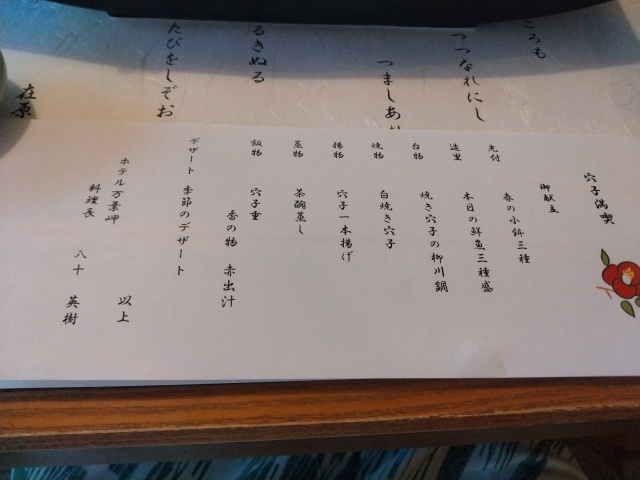 ころも
つつなれにし
つましあ
るきぬる
たびをしぞお
在原
穴子満喫
御献立
先付 春の小鉢三種
造里 本日の鮮魚三種盛
台物 焼き穴子の柳川鍋
焼物 白焼き穴子
揚物 穴子一本揚げ
蒸物 茶碗蒸し
飯物 穴子重
香の物 赤出汁
デザート 季節のデザート
ホテル万葉岬 以上
料理長 八十 英樹